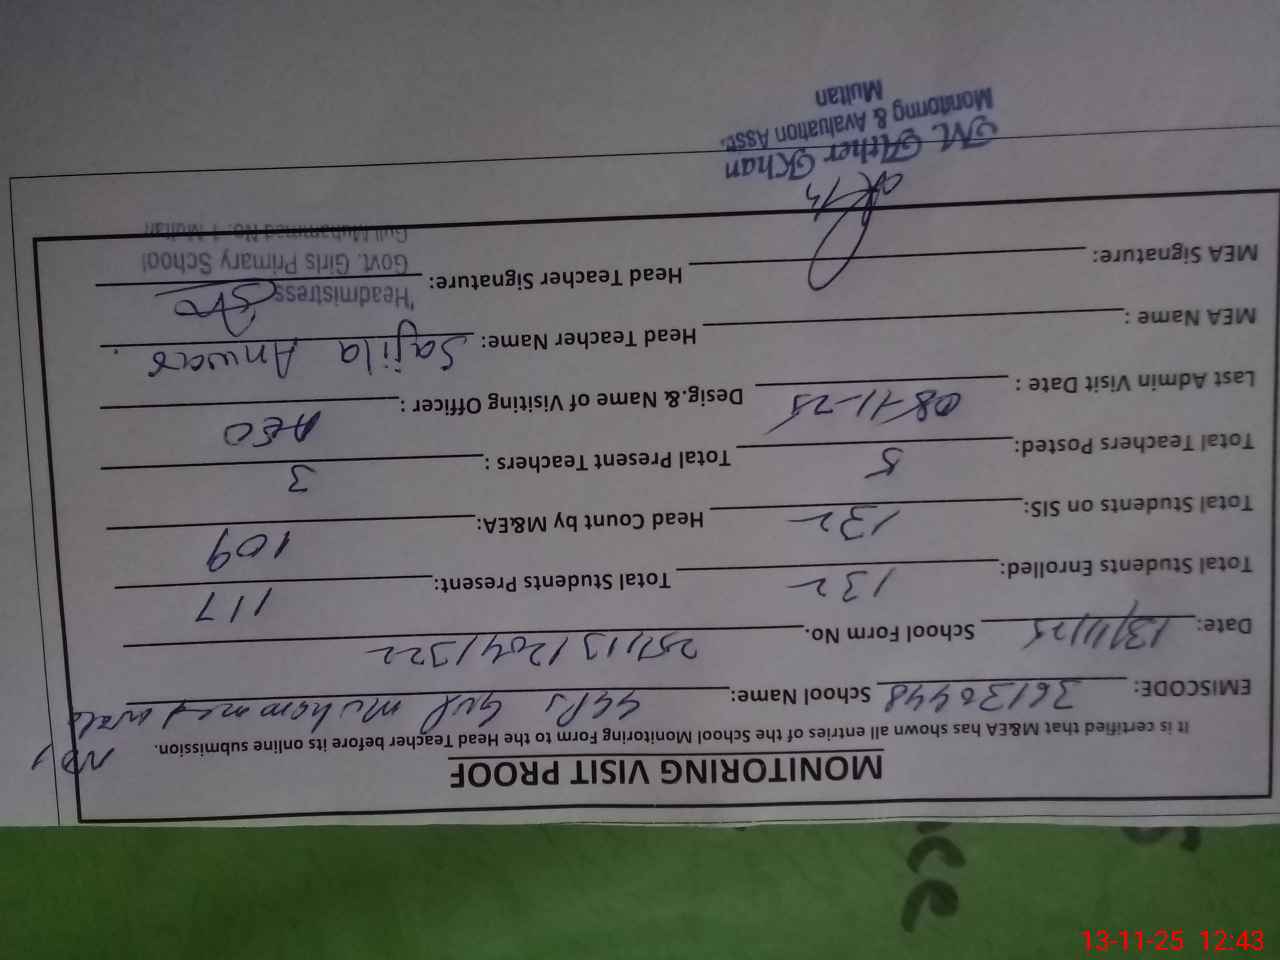 MONITORING VISIT PROOF
It is certified that M&EA has shown all entries of the School Monitoring Form to the Head Teacher before its online submission.
No 1
EMISCODE: 36130448 School Name: GGPS Gul Muhammad wala
Date: 13/11/25 School Form No. 25111312041322
Total Students Enrolled: 132 Total Students Present: 117
Total Students on SIS: 132 Head Count by M&EA: 109
Total Teachers Posted: 5 Total Present Teachers : 3
Last Admin Visit Date : 08-11-25 Desig.& Name of Visiting Officer : AEO
MEA Name : Head Teacher Name: Sajila Anwar.
MEA Signature: Head Teacher Signature:
Headmistress
Govt. Girls Primary School
Gul Muhammed No. 1 Multan
M. Ather Khan
Monitoring & Avaluation Asst.
Multan
13-11-25 12:43